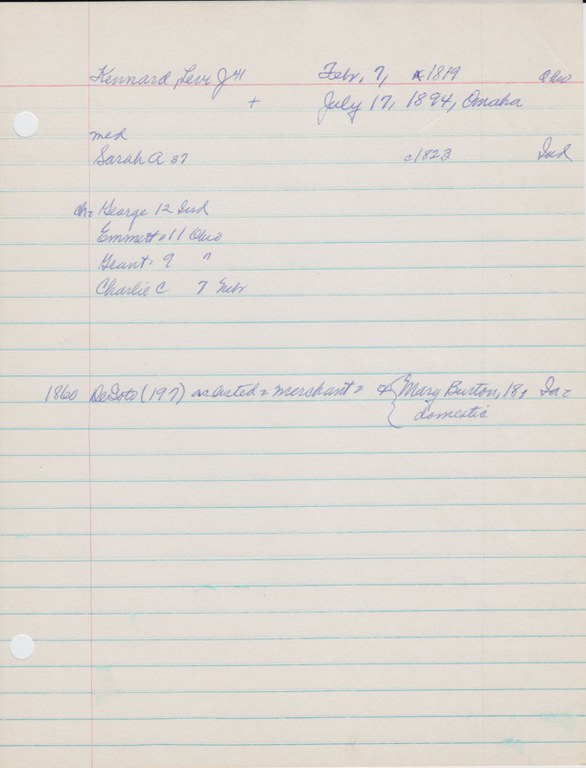 Kennard, Levi J 41 Febr, 7, 1819 Ohio
+ July 17, 1894, Omaha
med
Sarah A 37 c1823 Ind
ch= George 12 Ind
Emmett 11 Ohio
Grant 9 "
Charlie C 7 Nebr
1860 DeSoto (197) as listed = merchant = & { Mary Burton, 18, Ia =
domestic